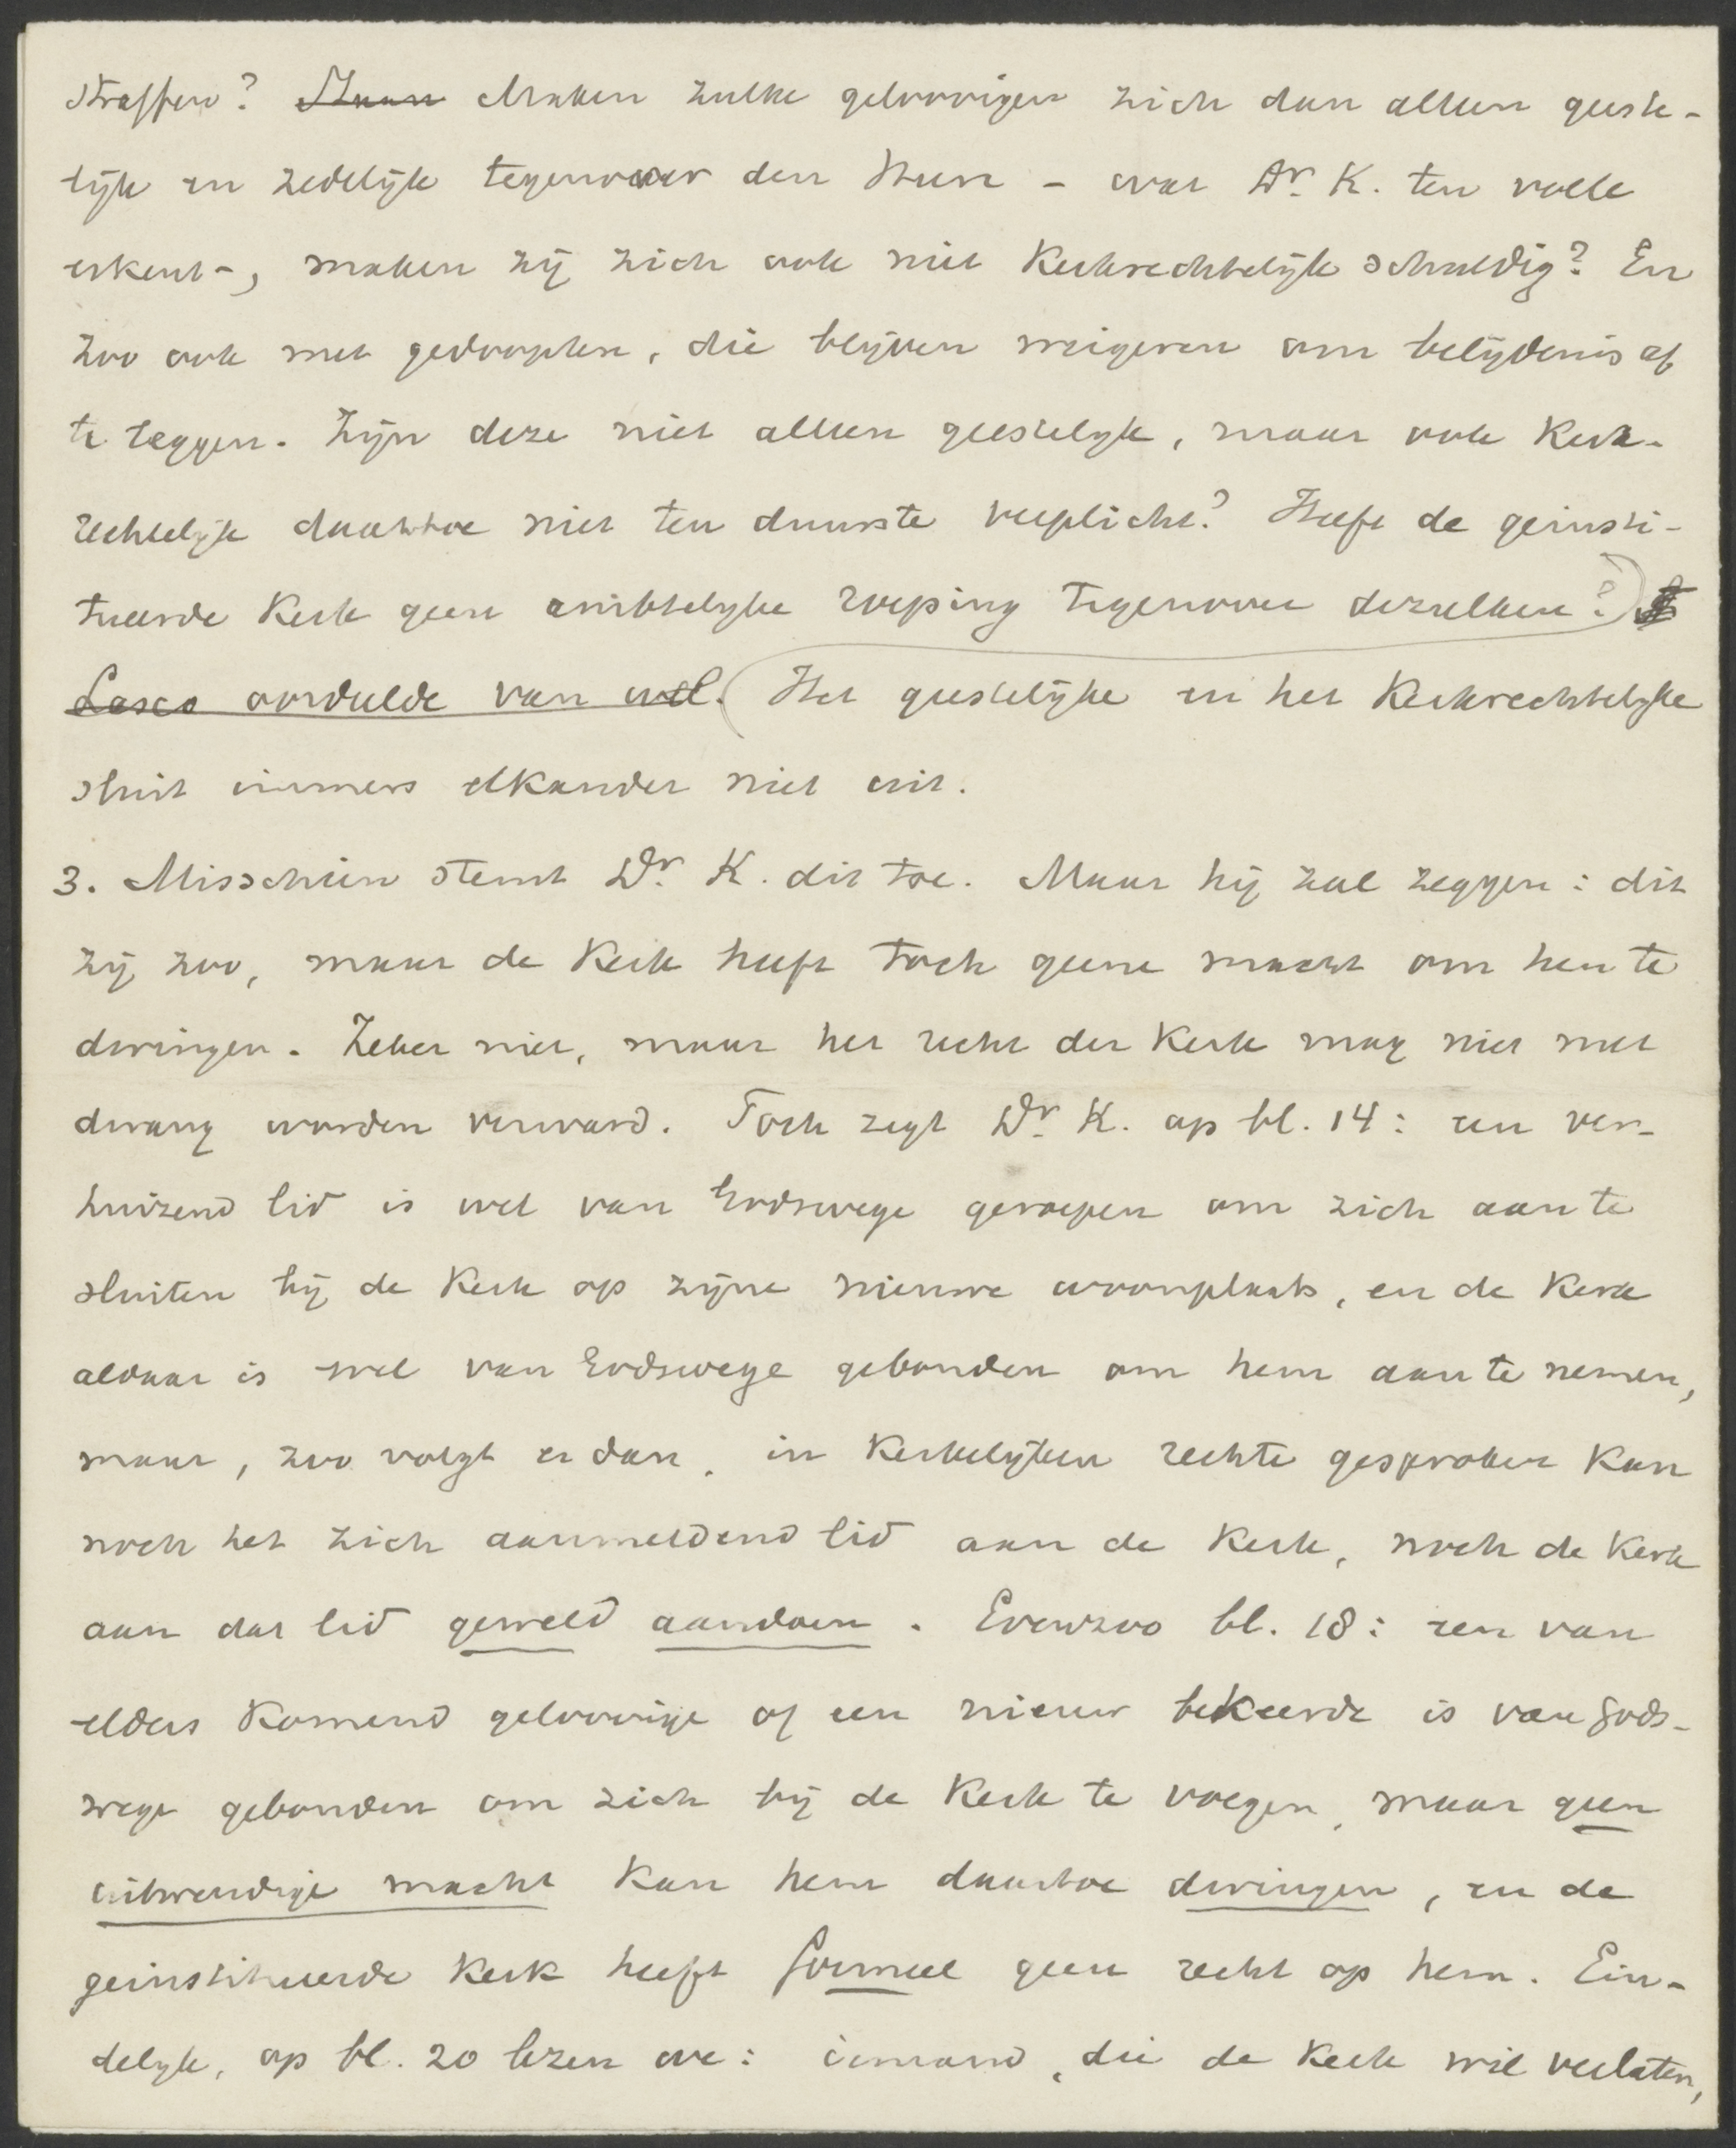 straffen? Staan Maken zulke geloovigen zich dan alleen geeste-
lijk en zedelijk tegenover den Heere - wat Dr. K. ten volle
erkent -, maken zij zich ook niet kerkrechtelijk schuldig? En
zoo ook met gedoopten, die blijven weigeren om belijdenis af
te leggen. Zijn deze niet alleen geestelijk, maar ook kerk-
rechtelijk daartoe niet ten duurste verplicht? Heeft de geinsti-
tueerde kerk geen ambtelijke roeping tegenover dezulken?
Lasco oordeelde van wel. Het geestelijke en het kerkrechtelijke
sluit immers elkander niet uit.
3. Misschien stemt Dr. K. dit toe. Maar hij zal zeggen: dit
zij zoo, maar de kerk heeft toch geene macht om hen te
dwingen. Zeker niet, maar het recht der kerk mag niet met
dwang worden verward. Toch zegt Dr. K. op bl. 14: een ver-
huizend lid is wel van Godswege geroepen om zich aan te
sluiten bij de kerk op zijne nieuwe woonplaats, en de kerk
aldaar is wel van Godswege gebonden om hem aan te nemen,
maar, zoo volgt er dan, in kerkelijken rechte gesproken kan
noch het zich aanmeldend lid aan de kerk, noch de kerk
aan dat lid geweld aandoen. Evenzoo bl. 18: een van
elders komend geloovige of een nieuw bekeerde is van Gods-
wege gebonden om zich bij de kerk te voegen, maar geen
uitwendige macht kan hem daartoe dwingen, en de
geinstitueerde kerk heeft formeel geen recht op hem. Ein-
delijk, op bl. 20 lezen we: iemand, die de kerk wil verlaten,